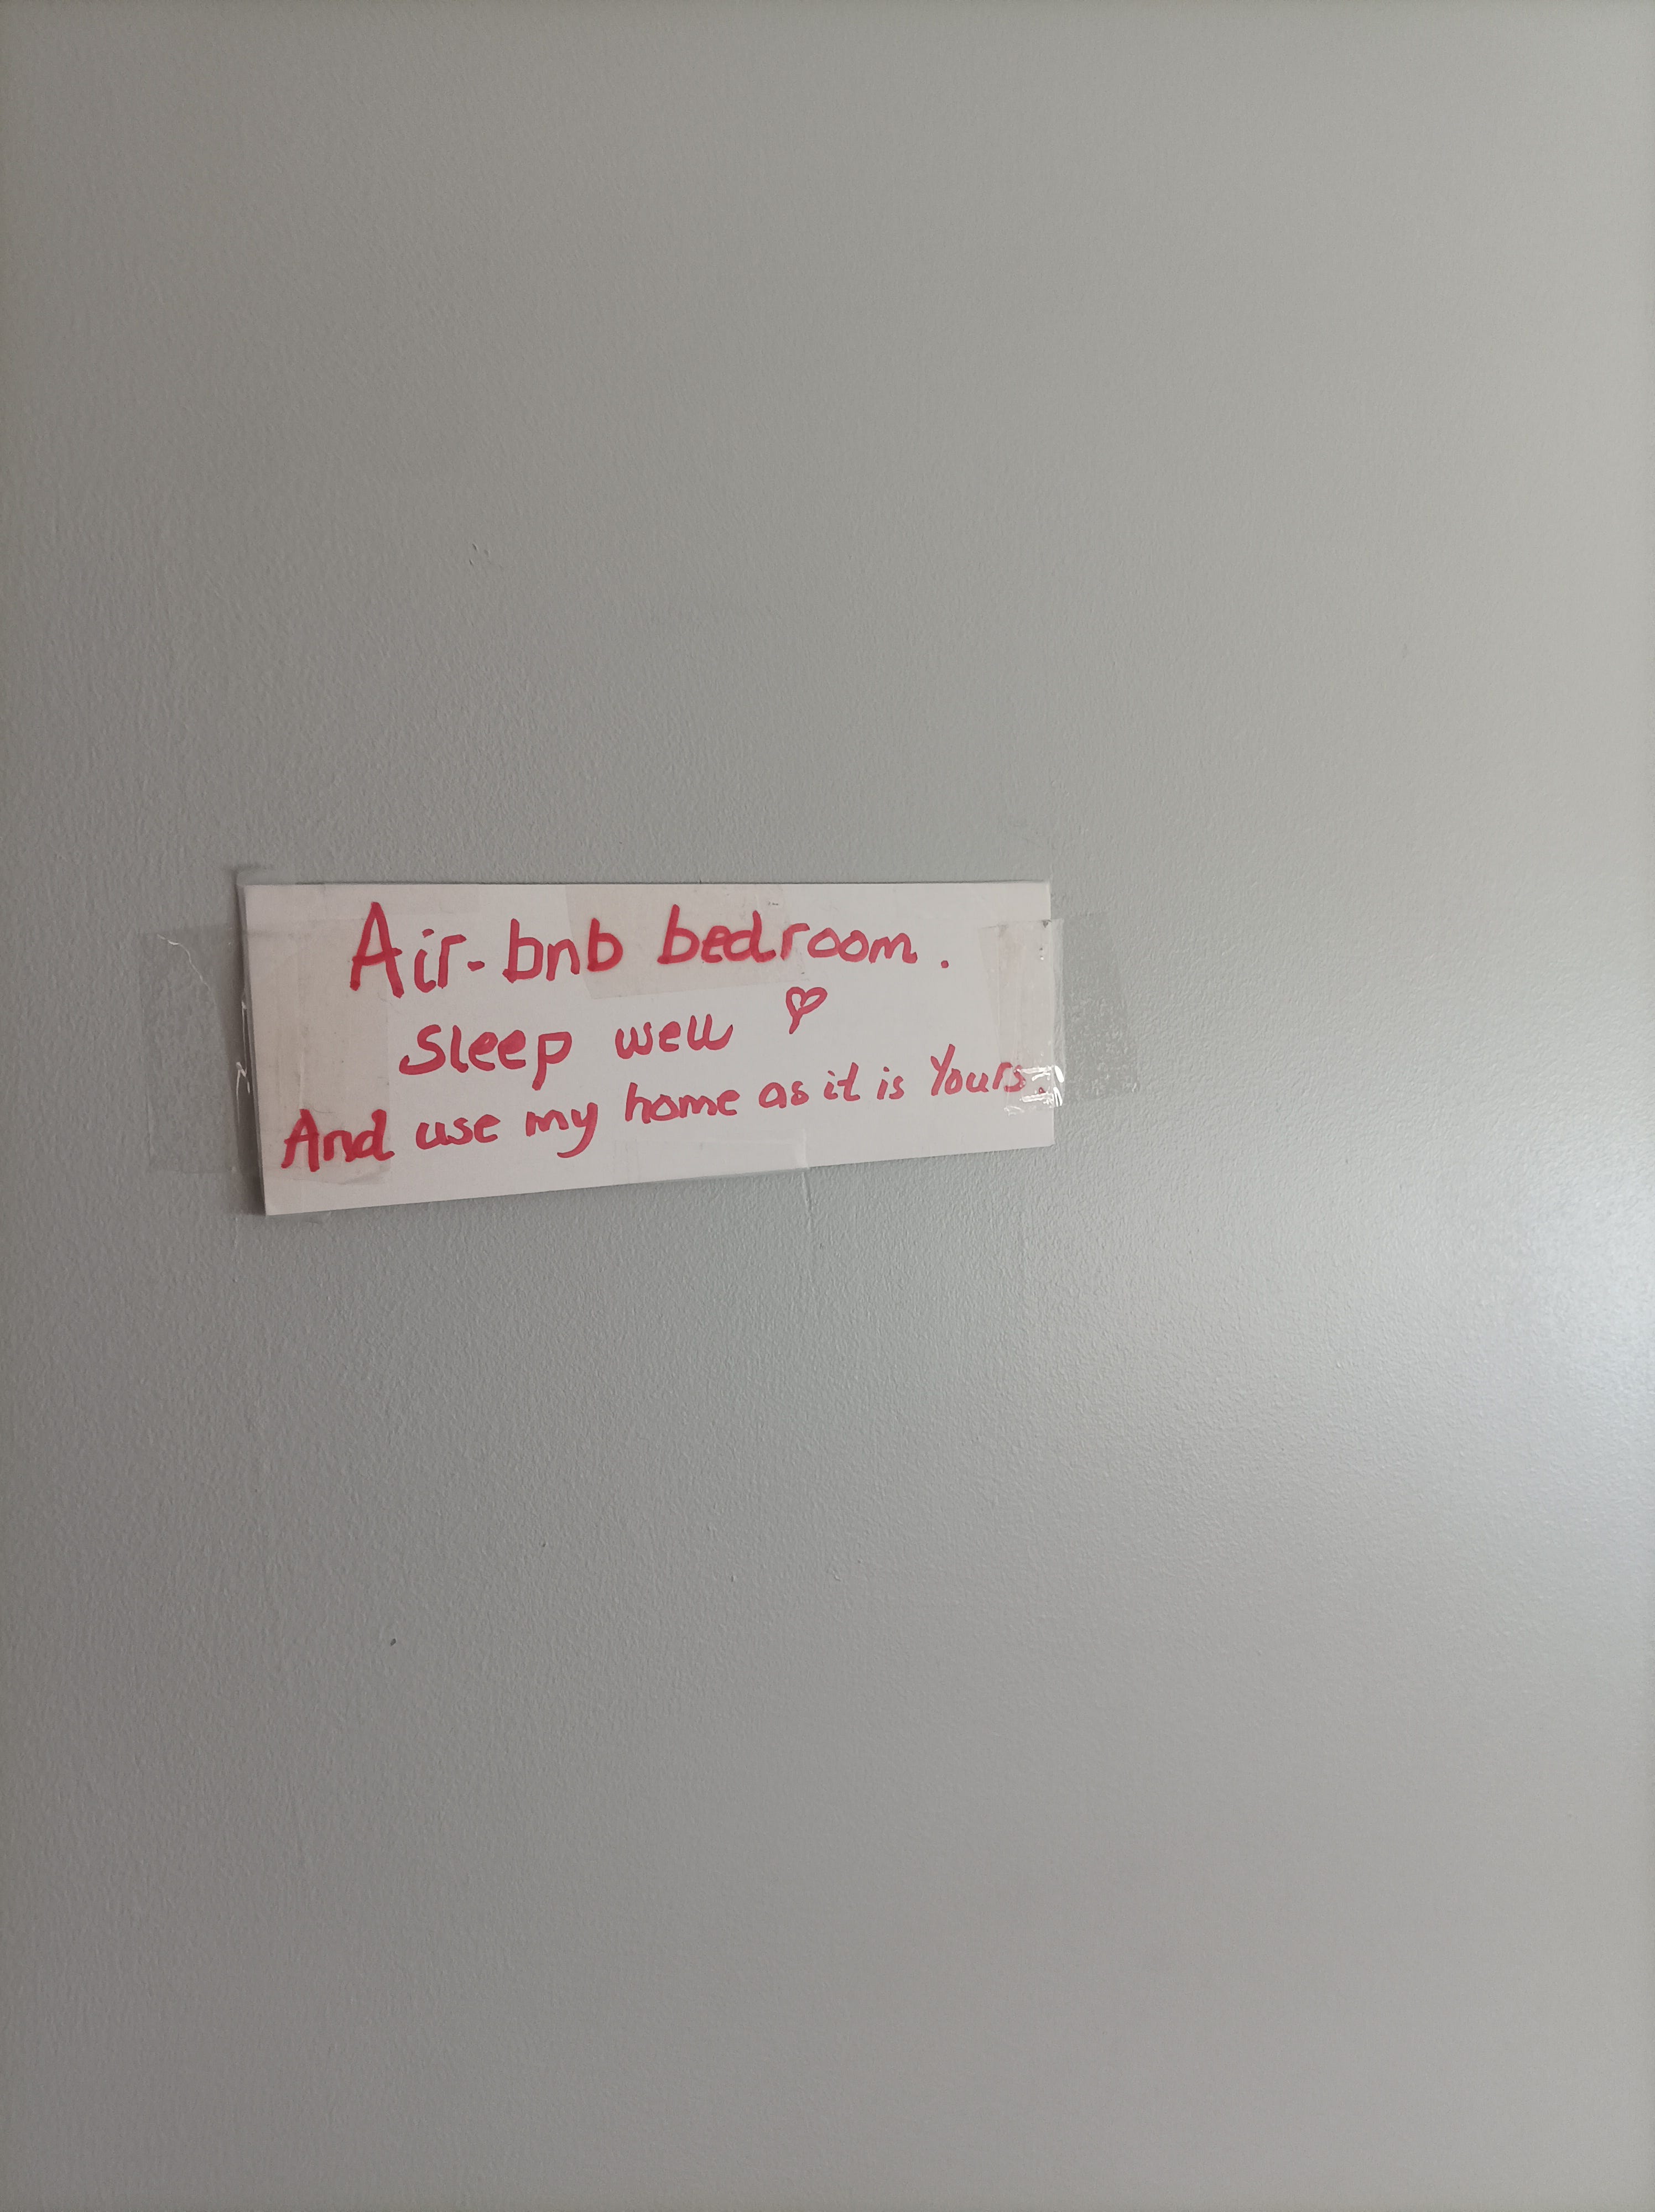 Air-bnb bedroom.
Sleep well ♡
And use my home as it is Yours.